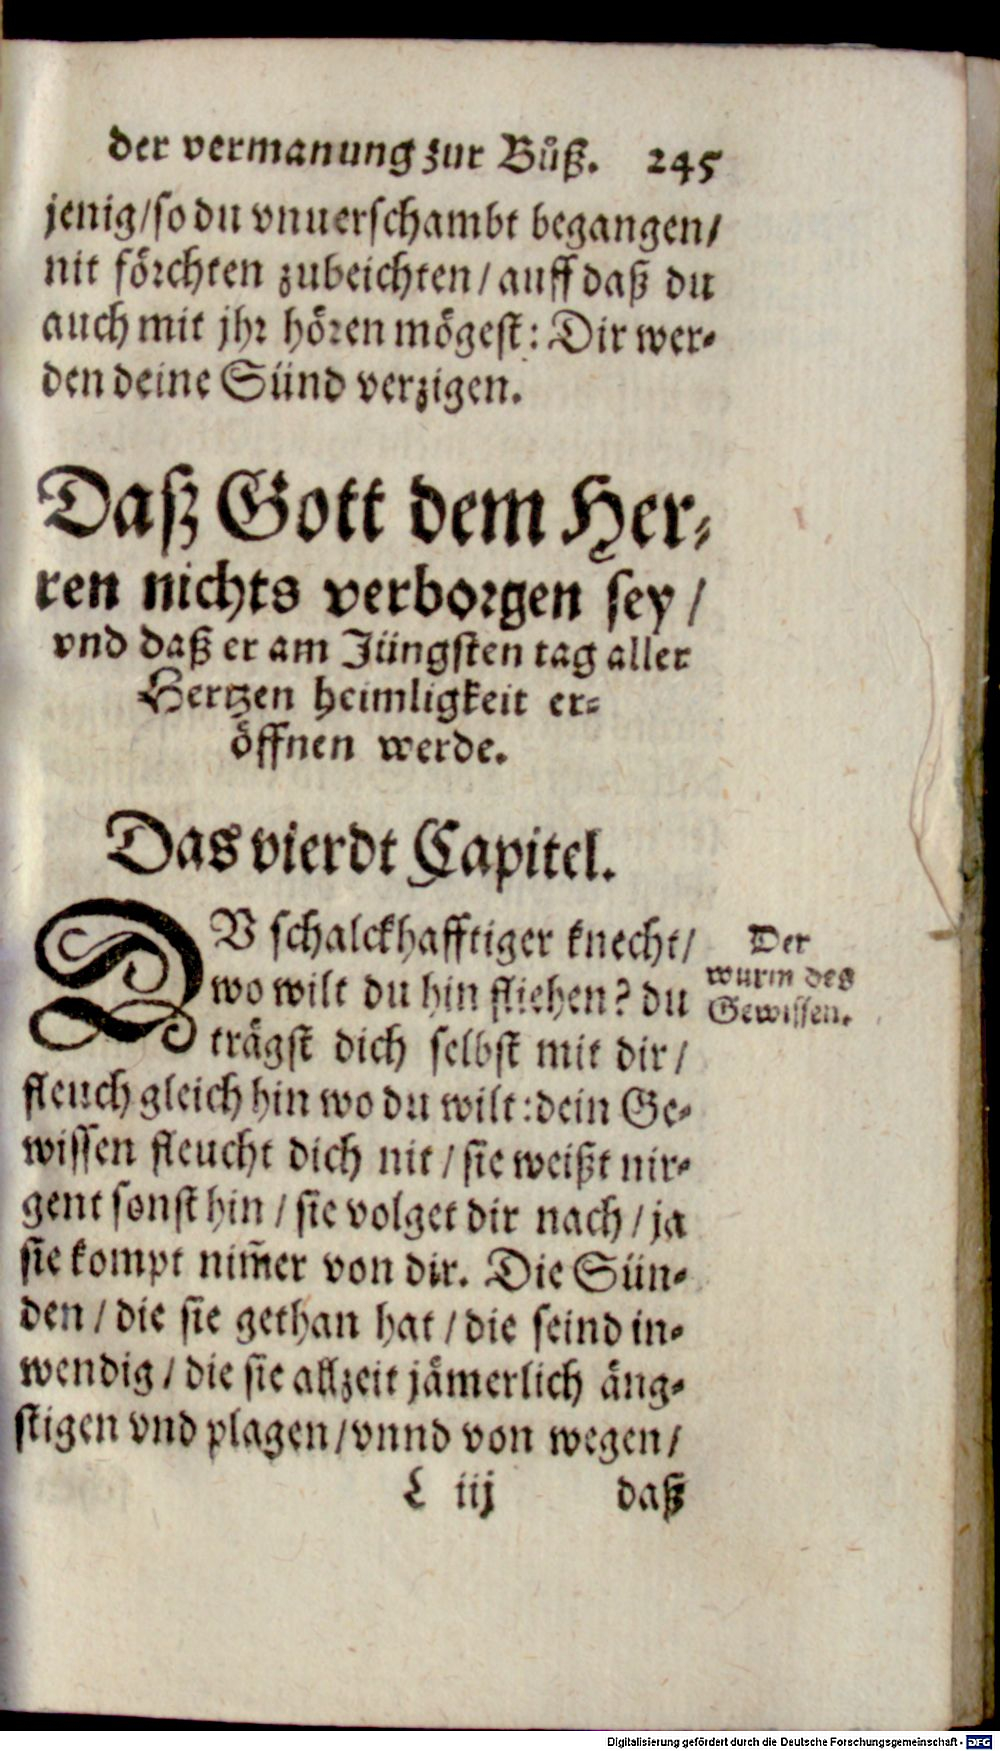 der vermanung zur Bůß. 245
jenig/so du vnuerschambt begangen/
nit förchten zubeichten/auff daß du
auch mit jhr hören mögest: Dir wer-
den deine Sünd verzigen.
Daß Gott dem Her-
ren nichts verborgen sey/
vnd daß er am Jüngsten tag aller
Hertzen heimligkeit er-
öffnen werde.
Das vierdt Capitel.
DV schalckhafftiger knecht/
wo wilt du hin fliehen? du
trägst dich selbst mit dir/
fleuch gleich hin wo du wilt:dein Ge-
wissen fleucht dich nit/sie weißt nir-
gent sonst hin/sie volget dir nach/ja
sie kompt nim̃er von dir. Die Sün-
den/die sie gethan hat/die seind in-
wendig/die sie allzeit jämerlich äng-
stigen vnd plagen/vnnd von wegen/
L iij daß
Der
wurm des
Gewissen.
Digitalisierung gefördert durch die Deutsche Forschungsgemeinschaft - DFG